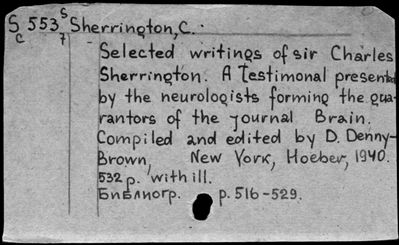 S 553 s Sherrington, C.
c 7 - Selected writings of sir Charles
Sherrington. A Testimonal presented
by the neurologists forming the gua-
rantors of the journal Brain.
Compiled and edited by D. Denny-
Brown, New York, Hoeber, 1940.
532 p. with ill.
Библиогр. p. 516-529.